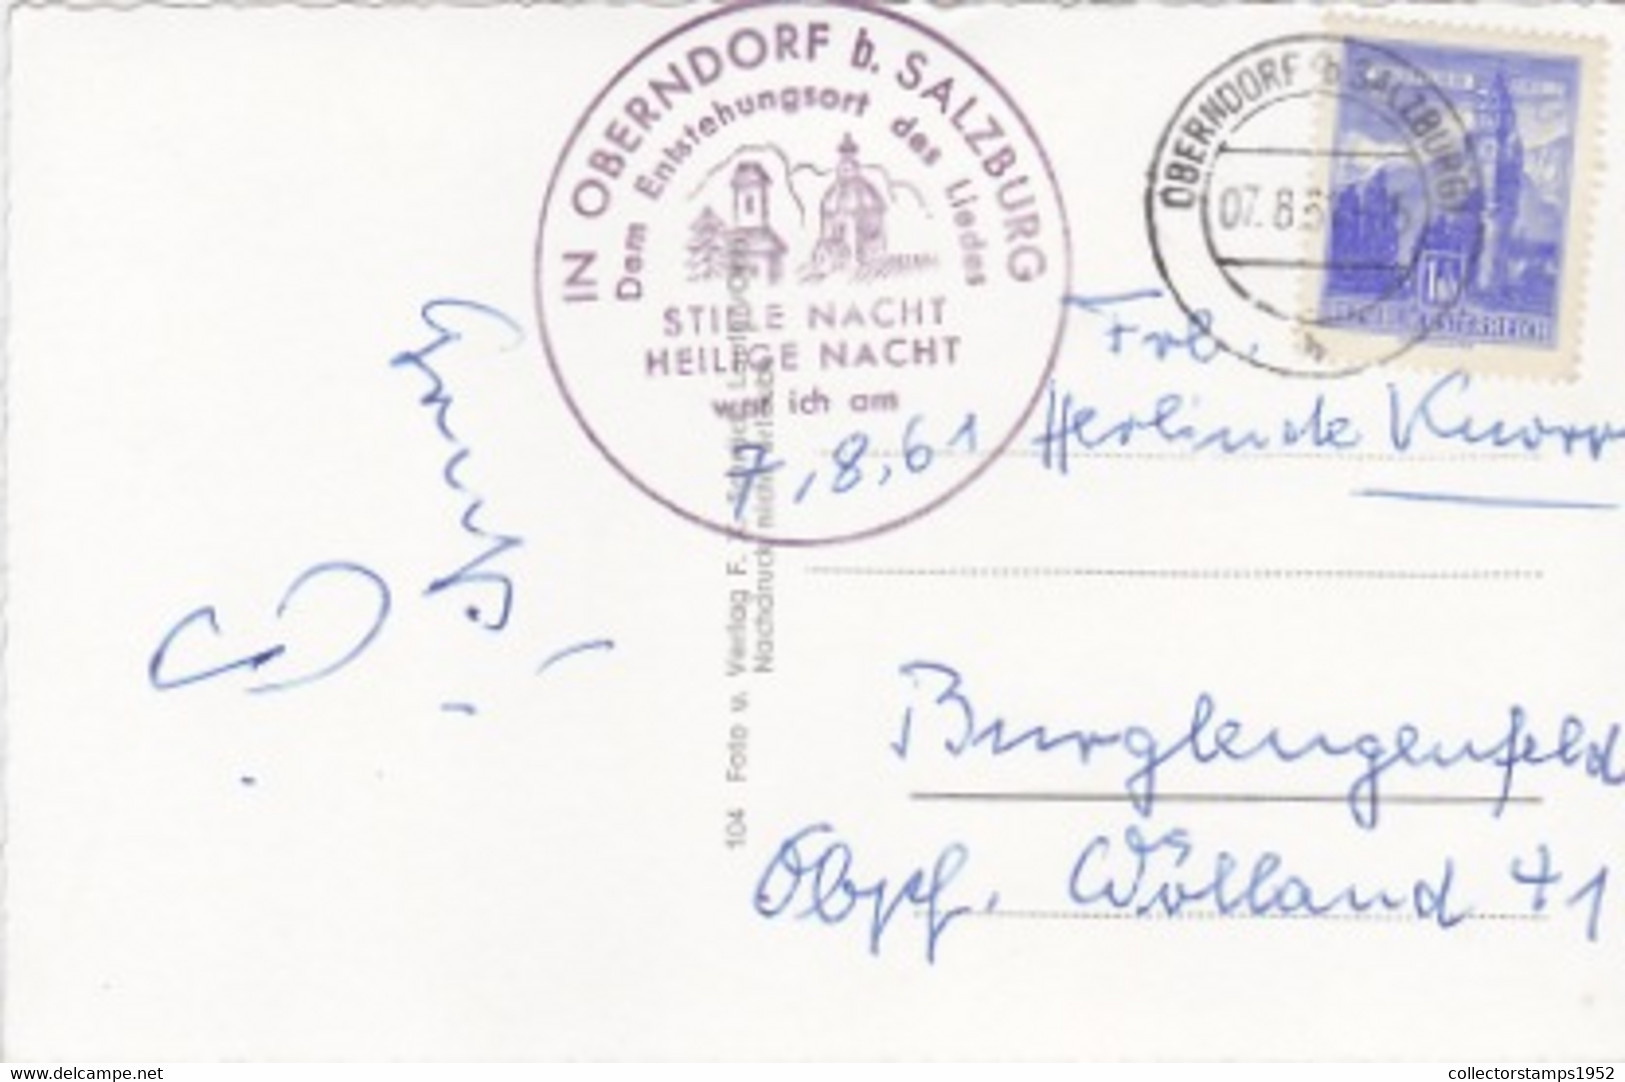 IN OBERNDORF b. SALZBURG
Dem Entstehungsort des Liedes
STILLE NACHT
HEILIGE NACHT
war ich am
7,8,61
OBERNDORF b SALZBURG
07.8.61
Frl.
Herlinde Knorr
Burglengenfeld
Obpf. Wölland 41
104 Foto u. Verlag F.
Nachdruck nicht erlaubt
www.delcampe.net
collectorstamps1952